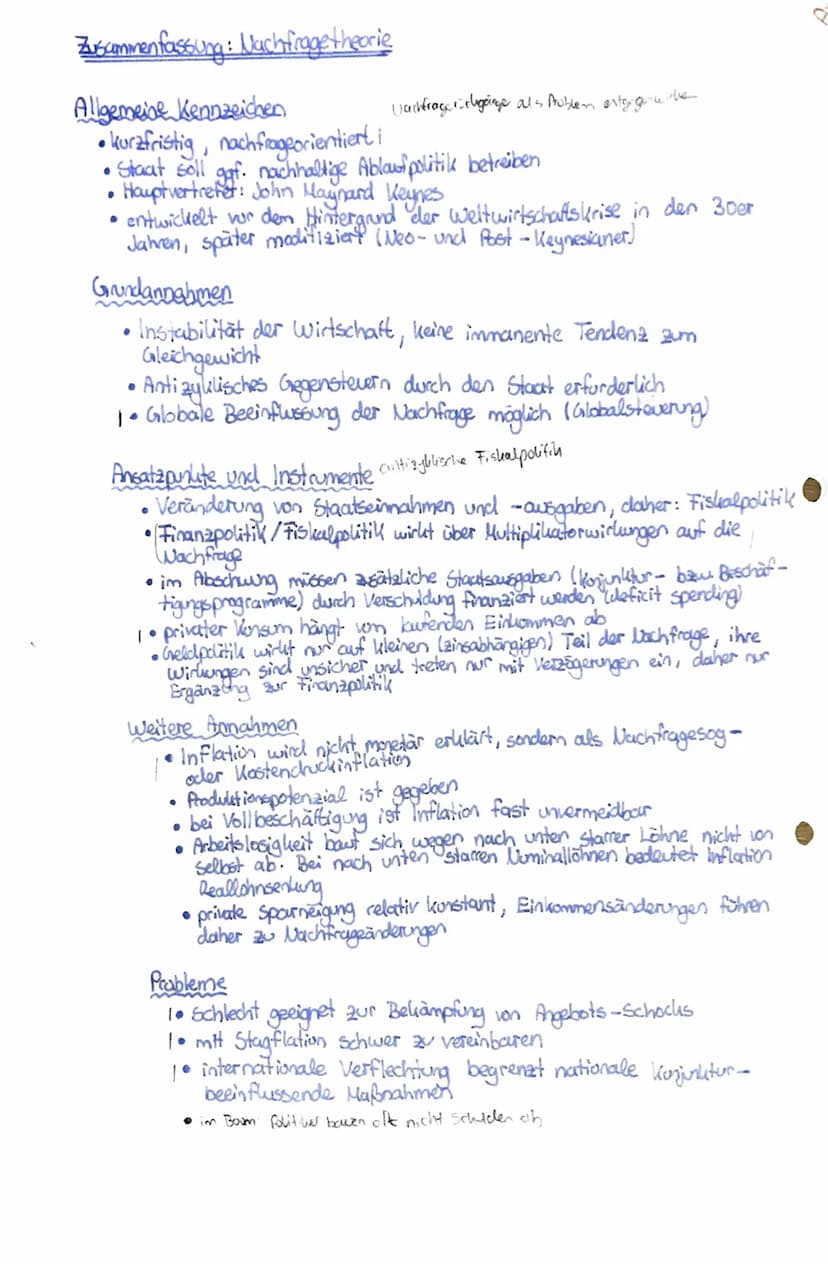 Zusammenfassung: Nachfragetheorie
Allgemeine Kennzeichen
Nachfragerückgänge als Problem
• kurzfristig, nachfrageorientiert
• Staat soll ggf. nachhaltige Ablaufpolitik betreiben
• Hauptvertreter: John Maynard Keynes
• entwickelt vor dem Hintergrund der Weltwirtschaftskrise in den 30er
Jahren, später modifiziert (Neo- und Post-Keynesianer)
Grundannahmen
• Instabilität der Wirtschaft, keine immanente Tendenz zum
Gleichgewicht
• Antizyklisches Gegensteuern durch den Staat erforderlich
• Globale Beeinflussung der Nachfrage möglich (Globalsteuerung)
Ansatzpunkte und Instrumente antizyklische Fiskalpolitik
• Veränderung von Staatseinnahmen und -ausgaben, daher: Fiskalpolitik
• Finanzpolitik/Fiskalpolitik wirkt über Multiplikatorwirkungen auf die
Nachfrage
• im Abschwung müssen zusätzliche Staatsausgaben (Konjunktur- bzw. Beschäf-
tigungsprogramme) durch Verschuldung finanziert werden (deficit spending)
• privater Konsum hängt vom laufenden Einkommen ab
• Geldpolitik wirkt nur auf kleinen (zinsabhängigen) Teil der Nachfrage, ihre
Wirkungen sind unsicher und treten nur mit Verzögerungen ein, daher nur
Ergänzung zur Finanzpolitik
Weitere Annahmen
• Inflation wird nicht monetär erklärt, sondern als Nachfragesog-
oder Kostendruckinflation
• Produktionspotenzial ist gegeben
• bei Vollbeschäftigung ist Inflation fast unvermeidbar
• Arbeitslosigkeit baut sich wegen nach unten starrer Löhne nicht von
selbst ab. Bei nach unten starren Nominallöhnen bedeutet Inflation
Reallohnsenkung
• private Sparneigung relativ konstant, Einkommensänderungen führen
daher zu Nachfrageänderungen
Probleme
• schlecht geeignet zur Bekämpfung von Angebots-Schocks
• mit Stagflation schwer zu vereinbaren
• internationale Verflechtung begrenzt nationale Konjunktur-
beeinflussende Maßnahmen
• im Boom Politiker bauen oft nicht Schulden ab